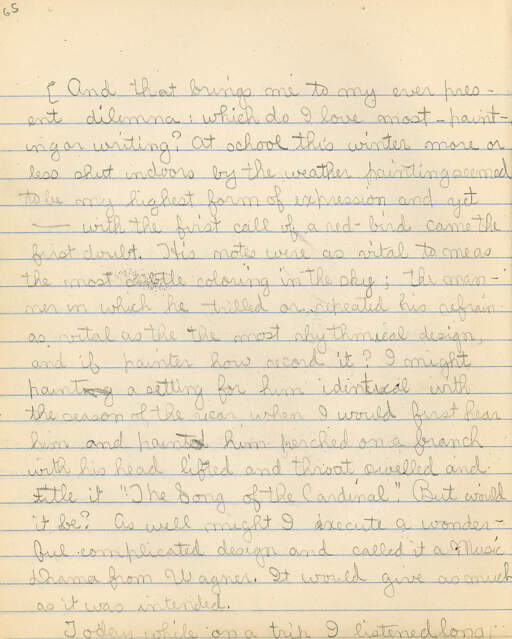 65
[ And that brings me to my ever pres-
ent dilemma: which do I love most - paint-
ing or writing? At school this winter more or
less shut indoors by the weather painting seemed
to be my highest form of expression and yet
— with the first call of a red-bird came the
first doubt. His notes were as vital to me as
the most subtle coloring in the sky; the man-
ner in which he trilled or repeated his refrain
as vital as the the most rhythmical design,
and if painter how record it? I might
paint a setting for him identical with
the season of the year when I would first hear
him and paint him perched on a branch
with his head lifted and throat swelled and
title it "The Song of the Cardinal". But would
it be? As well might I execute a wonder-
ful complicated design and called it a Music
drama from Wagner. It would give as much
as it was intended.
Today while on a trip I listened long